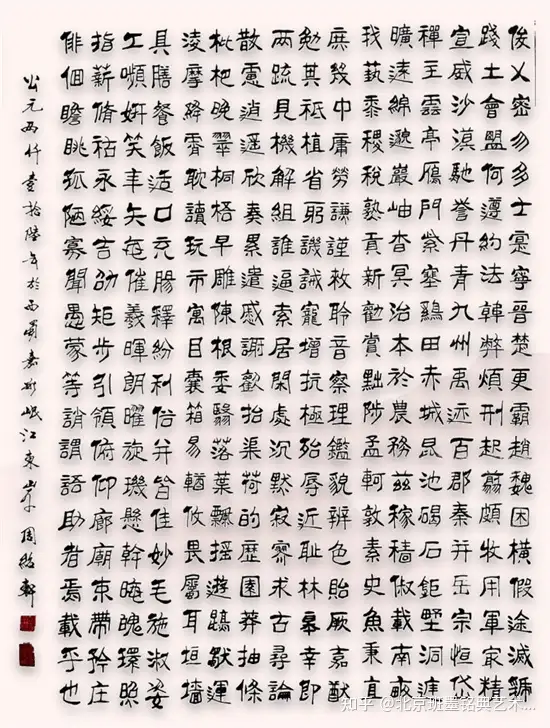 俊乂密勿多士寔寧晉楚更霸趙魏困橫假途滅虢
踐土會盟何遵約法韓弊煩刑起翦頗牧用軍冣精
宣威沙漠馳譽丹青九州禹迹百郡秦并岳宗恒岱
禪主雲亭鴈門紫塞鷄田赤城昆池碣石鉅野洞庭
曠遠綿邈巖岫杳冥治本於農務茲稼穡俶載南畝
我藝黍稷稅熟貢新勸賞黜陟孟軻敦素史魚秉直
庶幾中庸勞謙謹敕聆音察理鑑貌辨色貽厥嘉猷
勉其祗植省躬譏誡寵增抗極殆辱近恥林皋幸即
兩疏見機解組誰逼索居閑處沉默寂寥求古尋論
散慮逍遙欣奏累遣慼謝歡招渠荷的歷園莽抽條
枇杷晚翠桐梧早雕陳根委翳落葉飄搖遊鵾獨運
凌摩絳霄耽讀玩市寓目囊箱易輶攸畏屬耳垣牆
具膳餐飯適口充腸釋紛利俗并皆佳妙毛施淑姿
工嚬妍笑年矢每催羲暉朗曜旋璣懸斡晦魄環照
指薪脩祜永綏吉劭矩步引領俯仰廊廟束帶矜庄
俳佪瞻眺孤陋寡聞愚蒙等誚謂語助者焉載乎也
公元兩仟壹拾陸年於西蜀嘉州岷江東岸周軒
知乎 @北京班墨铭典艺术...